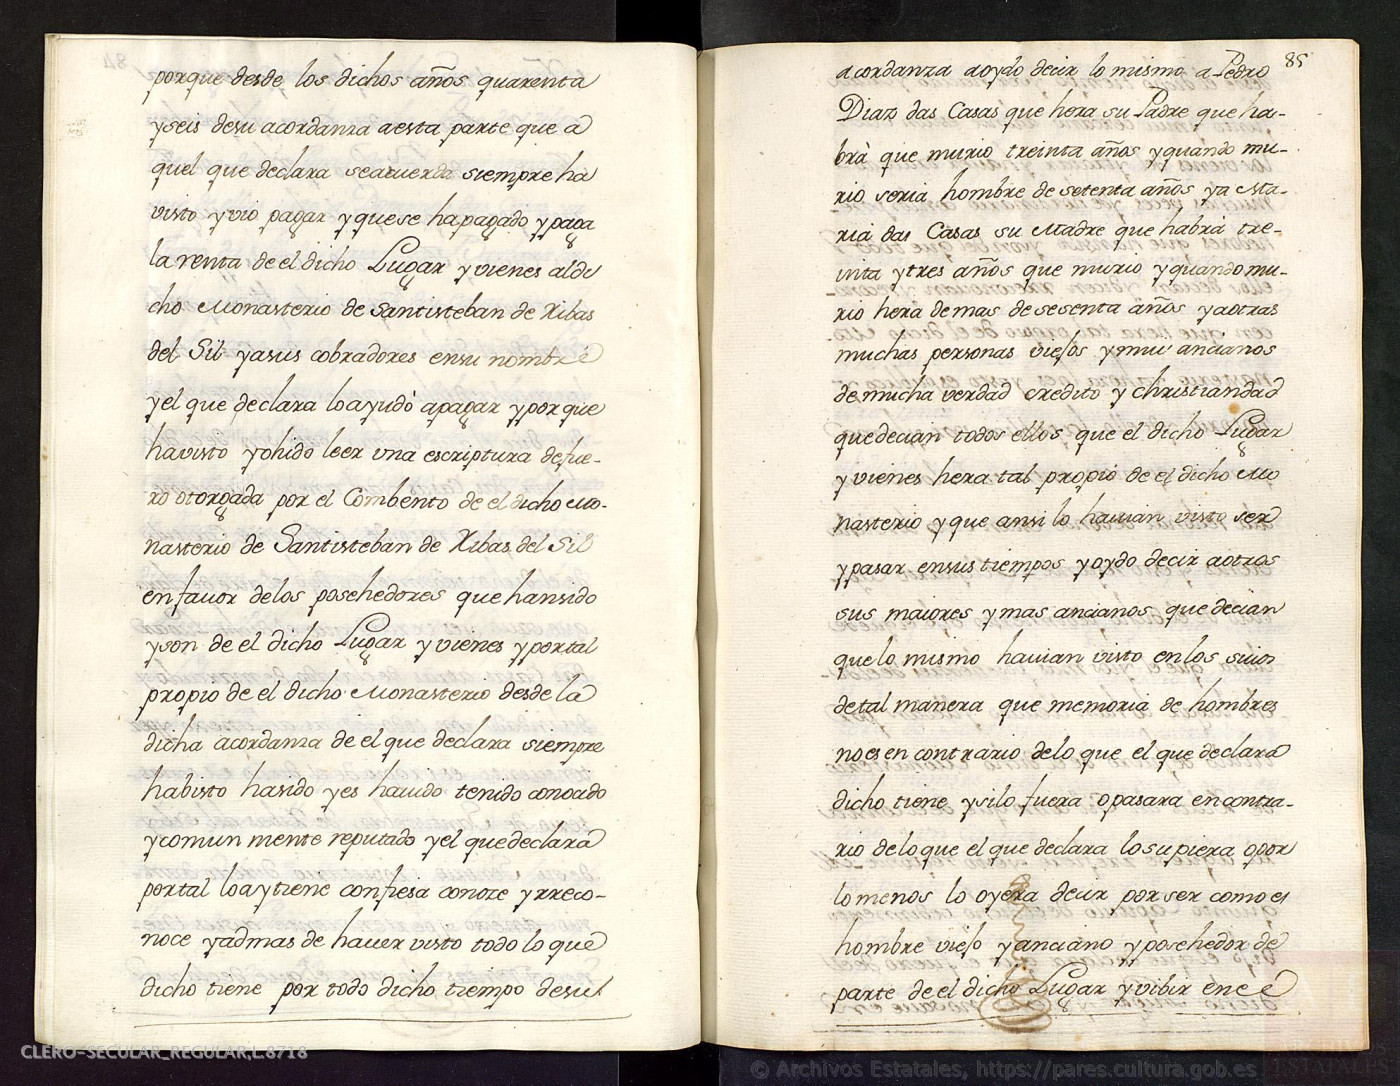 porque desde los dichos años quarenta
y seis desu acordanza aesta parte que a
quel que declara seacuerda siempre ha
visto y vio pagar y que se hapagado y paga
la renta de el dicho Lugar y vienes aldi
cho Monasterio de Santisteban de Ribas
del Sil y asus cobradores ensu nombre
y el que declara loayudò apagar y porque
havisto y ohido leer vna escriptura defue-
ro otorgada por el Combento de el dicho Mo-
nasterio de Santisteban de Ribas del Sil
en fauor delos posehedores que hansido
y son de el dicho Lugar y vienes y portal
propio de el dicho Monasterio desde la
dicha acordanza de el que declara siempre
habisto hasido y es hauido tenido conocido
y comun mente reputado y el que declara
portal loay tiene confiesa conoce y rreco-
noce y admas de hauer visto todo lo que
dicho tiene por todo dicho tiempo desu
85
acordanza aoydo decir lo mismo a Pedro
Diaz das Casas que hera su Padre que ha-
brà que murio treinta años y quando mu-
rio seria hombre de setenta años y a Ma-
ria das Casas su Madre que habrà tre-
inta y tres años que murio y quando mu-
rio hera de mas de sesenta años y aotras
muchas personas viejos y mui ancianos
de mucha verdad credito y christiandad
que decian todos ellos que el dicho Lugar
y vienes hera tal propio de el dicho Mo
nasterio y que ansi lo hauian visto ser
y pasar ensus tiempos y oydo decir aotros
sus maiores y mas ancianos que decian
que lo mismo hauian visto en los suios
de tal manera que memoria de hombres
no es en contrario delo que el que declara
dicho tiene y silo fuera o pasara en contra-
rio de lo que el que declara lo supiera o por
lo menos lo oyera decir por ser como es
hombre viejo y anciano y posehedor de
parte de el dicho Lugar y vibir en e
CLERO-SECULAR_REGULAR,L.8718
© Archivos Estatales, https://pares.cultura.gob.es